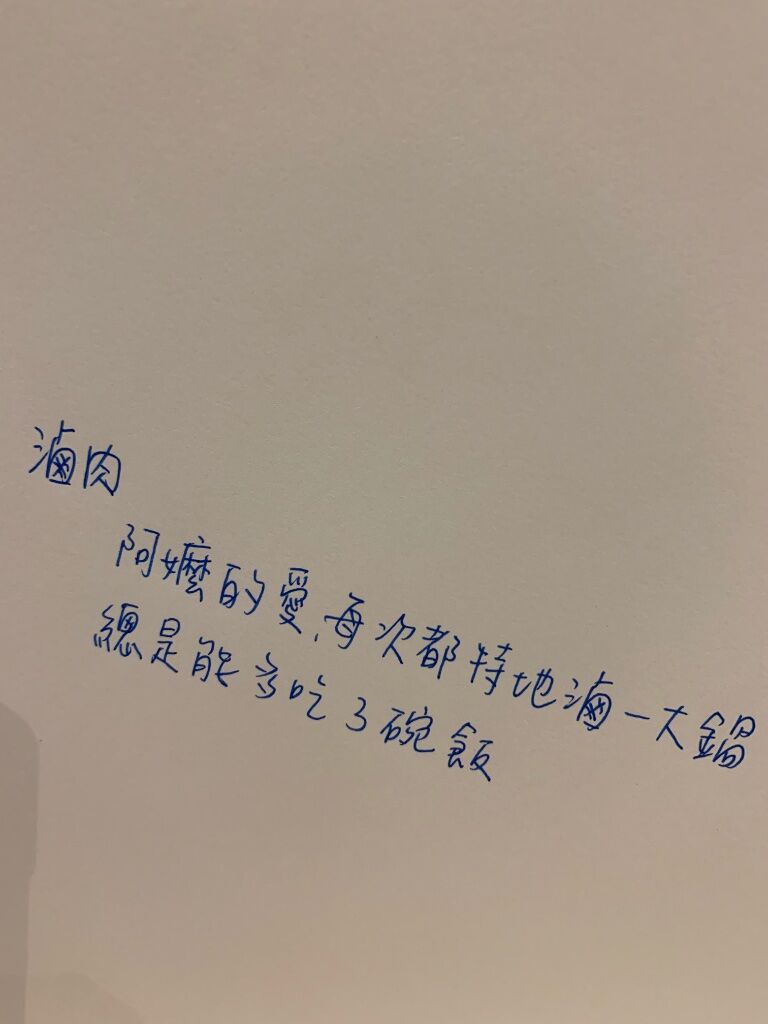 滷肉
阿嬤的愛,每次都特地滷一大鍋
總是能多吃3碗飯